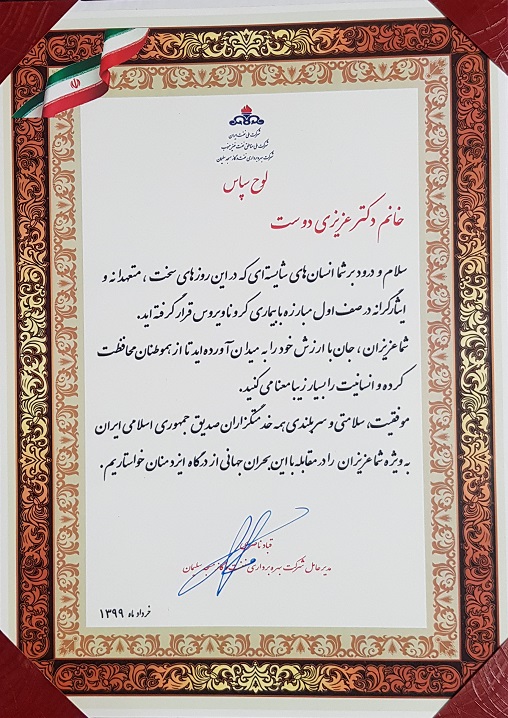 شرکت ملی نفت ایران
شرکت ملی مناطق نفت خیز جنوب
شرکت بهره برداری نفت و گاز مسجد سلیمان
لوح سپاس
خانم دکتر عزیزی دوست
سلام و درود بر شما انسان های شایسته ای که در این روزهای سخت ، متعهدانه و
ایثارگرانه در صف اول مبارزه با بیماری کرونا ویروس قرار گرفته اید.
شما عزیزان ، جان با ارزش خود را به میدان آورده اید تا از هموطنان محافظت
کرده و انسانیت را بسیار زیبا معنا می کنید.
موفقیت، سلامتی و سربلندی همه خدمتگزاران صدیق جمهوری اسلامی ایران
به ویژه شما عزیزان را در مقابله با این بحران جهانی از درگاه ایزد منان خواستاریم.
قباد
مدیر عامل شرکت بهره برداری نفت و گاز مسجد سلیمان
خرداد ماه ۱۳۹۹